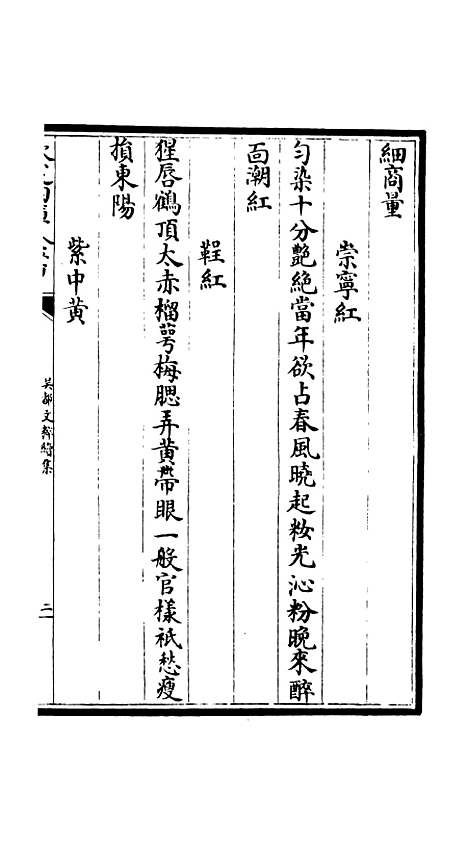 細商量
崇寧紅
匀染十分艷絶當年欲占春風曉起粧光沁粉晩來醉
面潮紅
鞓紅
猩唇鶴頂太赤榴萼梅腮弄黄帶眼一般官樣祇愁瘦
損東陽
紫中黄
吳都文粹續集
三